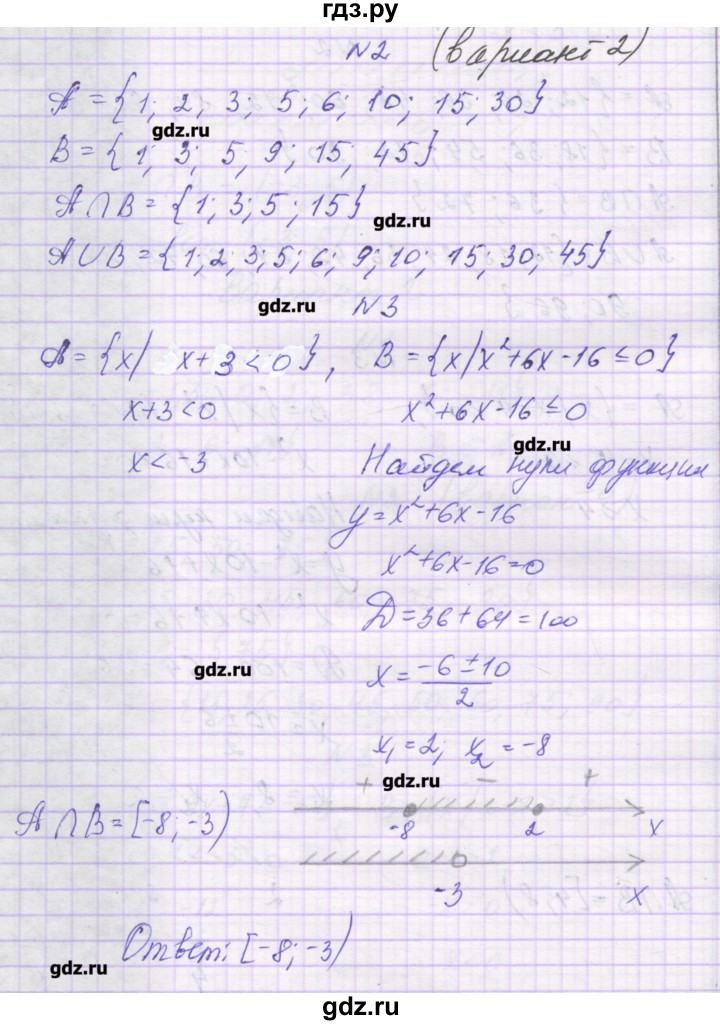 гдз.ру
N2 (вариант 2)
A = {1; 2; 3; 5; 6; 10; 15; 30}
gdz.ru
B = {1; 3; 5; 9; 15; 45}
A ∩ B = {1; 3; 5; 15}
gdz.ru
A ∪ B = {1; 2; 3; 5; 6; 9; 10; 15; 30, 45}
gdz.ru
N3
A = {x/ x+3<0}, B = {x/x²+6x-16≤0}
x+3<0 x²+6x-16≤0
gdz.ru
x<-3 Найдем нули функции
y=x²+6x-16
x²+6x-16=0
gdz.ru
D=36+64=100
gdz.ru
x = (-6±10)/2
x₁=2, x₂=-8
gdz.ru
+ - +
A ∩ B = [-8; -3)
-8 2 x
-3 x
Ответ: [-8; -3)
gdz.ru
gdz.ru